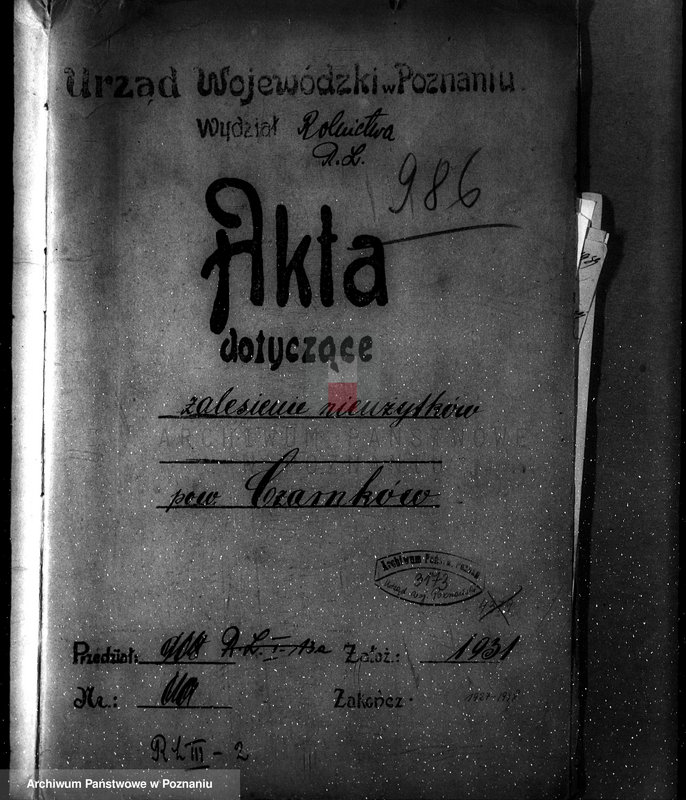 Urząd Wojewódzki w Poznaniu
Wydział Rolnictwa
R.L.
986
Akta
dotyczące
zalesienie nieużytków
ARCHIWUM PAŃSTWOWE
pow Czarnków
Archiwum Państw. Poznań
3173
Urząd Woj. Poznański
Przedział: R.L. I-13a Założ.: 1931
Nr.: Zakończ.
RL III - 2
Archiwum Państwowe w Poznaniu